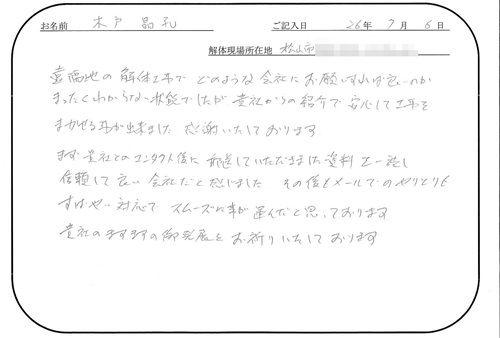 お名前 木戸 晶孔 ご記入日 26年 7月 6日
解体現場所在地 松山市
遠隔地の解体工事で どのような会社にお願いすれば良いのか
まったくわからない状態でしたが 貴社からの紹介で 安心して工事を
まかせる事が出来ました 感謝いたしております
まず貴社とのコンタクト後に 郵送していただきました資料を一読し
信頼して良い会社だと感じました その後もメールでのやりとりも
すばやい対応で スムーズに事が運んだと思っております
貴社のますますの御発展をお祈りいたしております